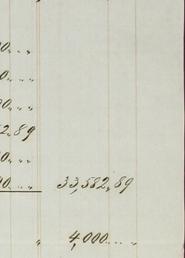 0 „ „
0 „ „
0 „ „
2.89
0 „ „
0 „ „ 33,582,89
„ 4,000 „ „